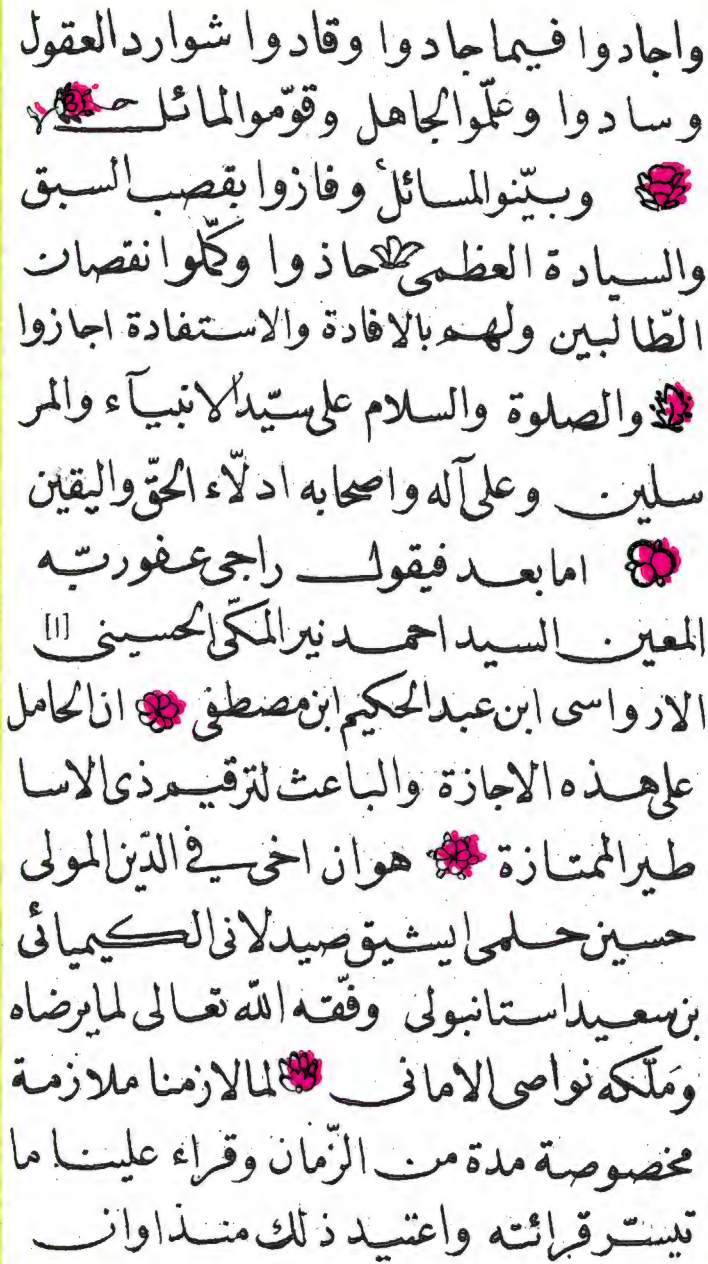 واجادوا فيما جادوا وقادوا شوارد العقول
وسادوا وعلّموا لجاهل وقوّموالمائل
وبيّنوالمسائل وفازوا بقصب السبق
والسيادة العظمى حاذوا وكمّلوا نقصان
الطّالبين ولهم بالافادة والاستفادة اجازوا
والصلوة والسلام على سيّد الانبيآء والمر
سلين وعلى آله واصحابه ادلّاء الحقّ واليقين
اما بعد فيقول راجى عفو ربّه
المعين السيد احمد نير المكّى الحسينى [١]
الارواسى ابن عبد الحكيم ابن مصطفى ان الحامل
على هذه الاجازة والباعث لترقيم ذى الاسا
طير الممتازة هو ان اخى في الدّين المولى
حسين حلمى ايشيق صيدلانى الكيميائى
بن سعيد استانبولى وفّقه الله تعالى لما يرضاه
وَملّكه نواصى الامانى لما لازمنا ملازمة
مخصوصة مدة من الزّمان وقراء علينا ما
تيسّر قرائته واعتيد ذلك منذ اوان